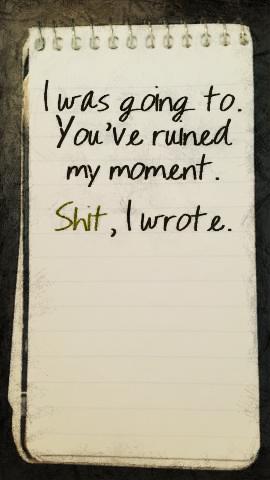 I was going to.
You've ruined
my moment.
Shit, I wrote.